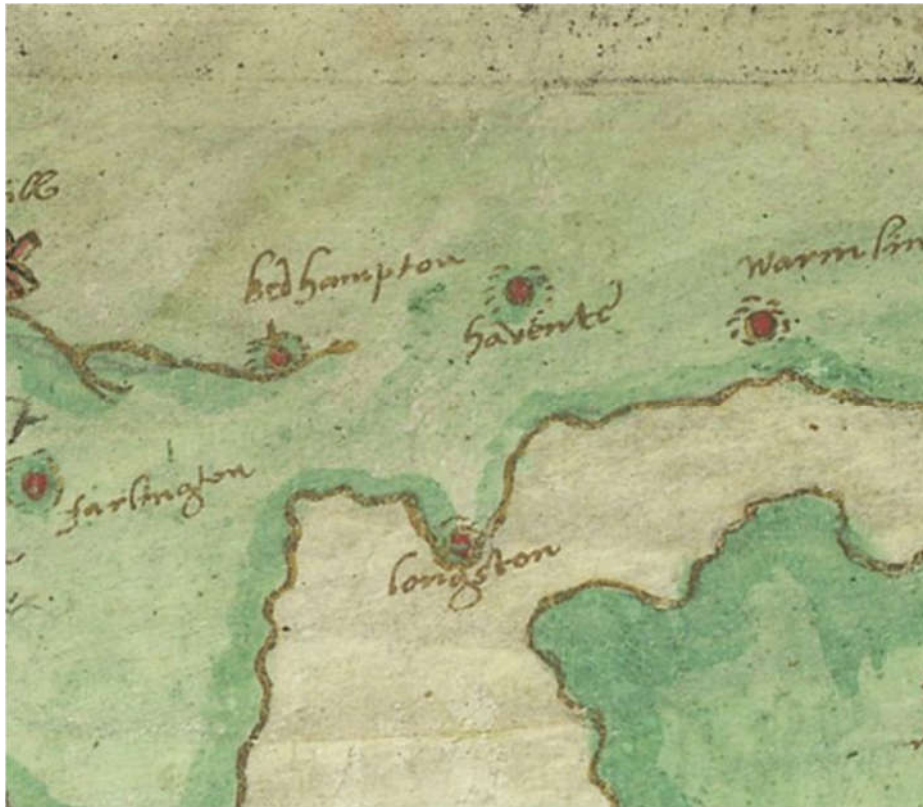 ill
bedhampton
havente
warmlin
farlington
longston